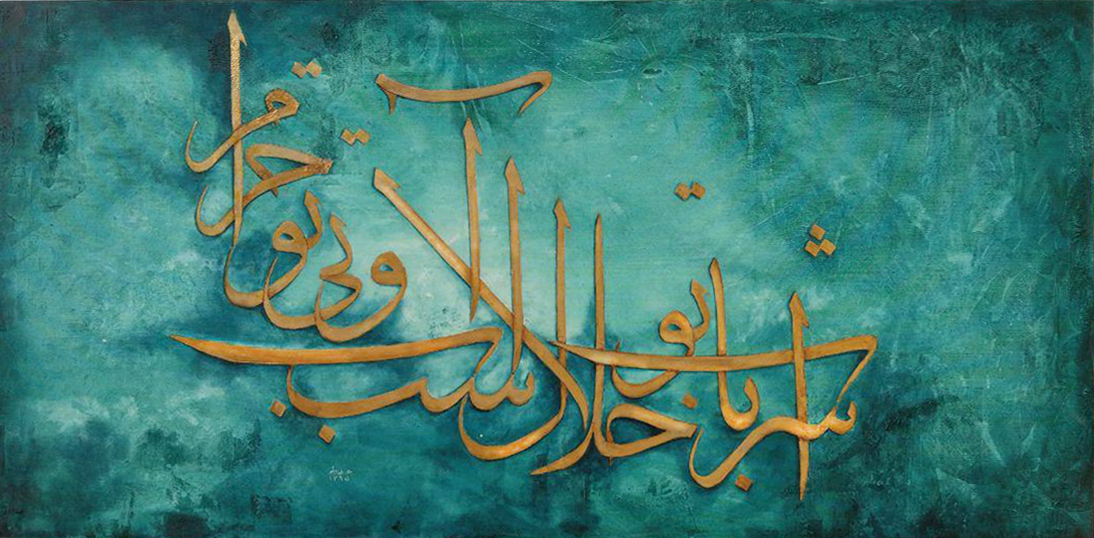 شراب با تو حلال است و آب بی تو حرام